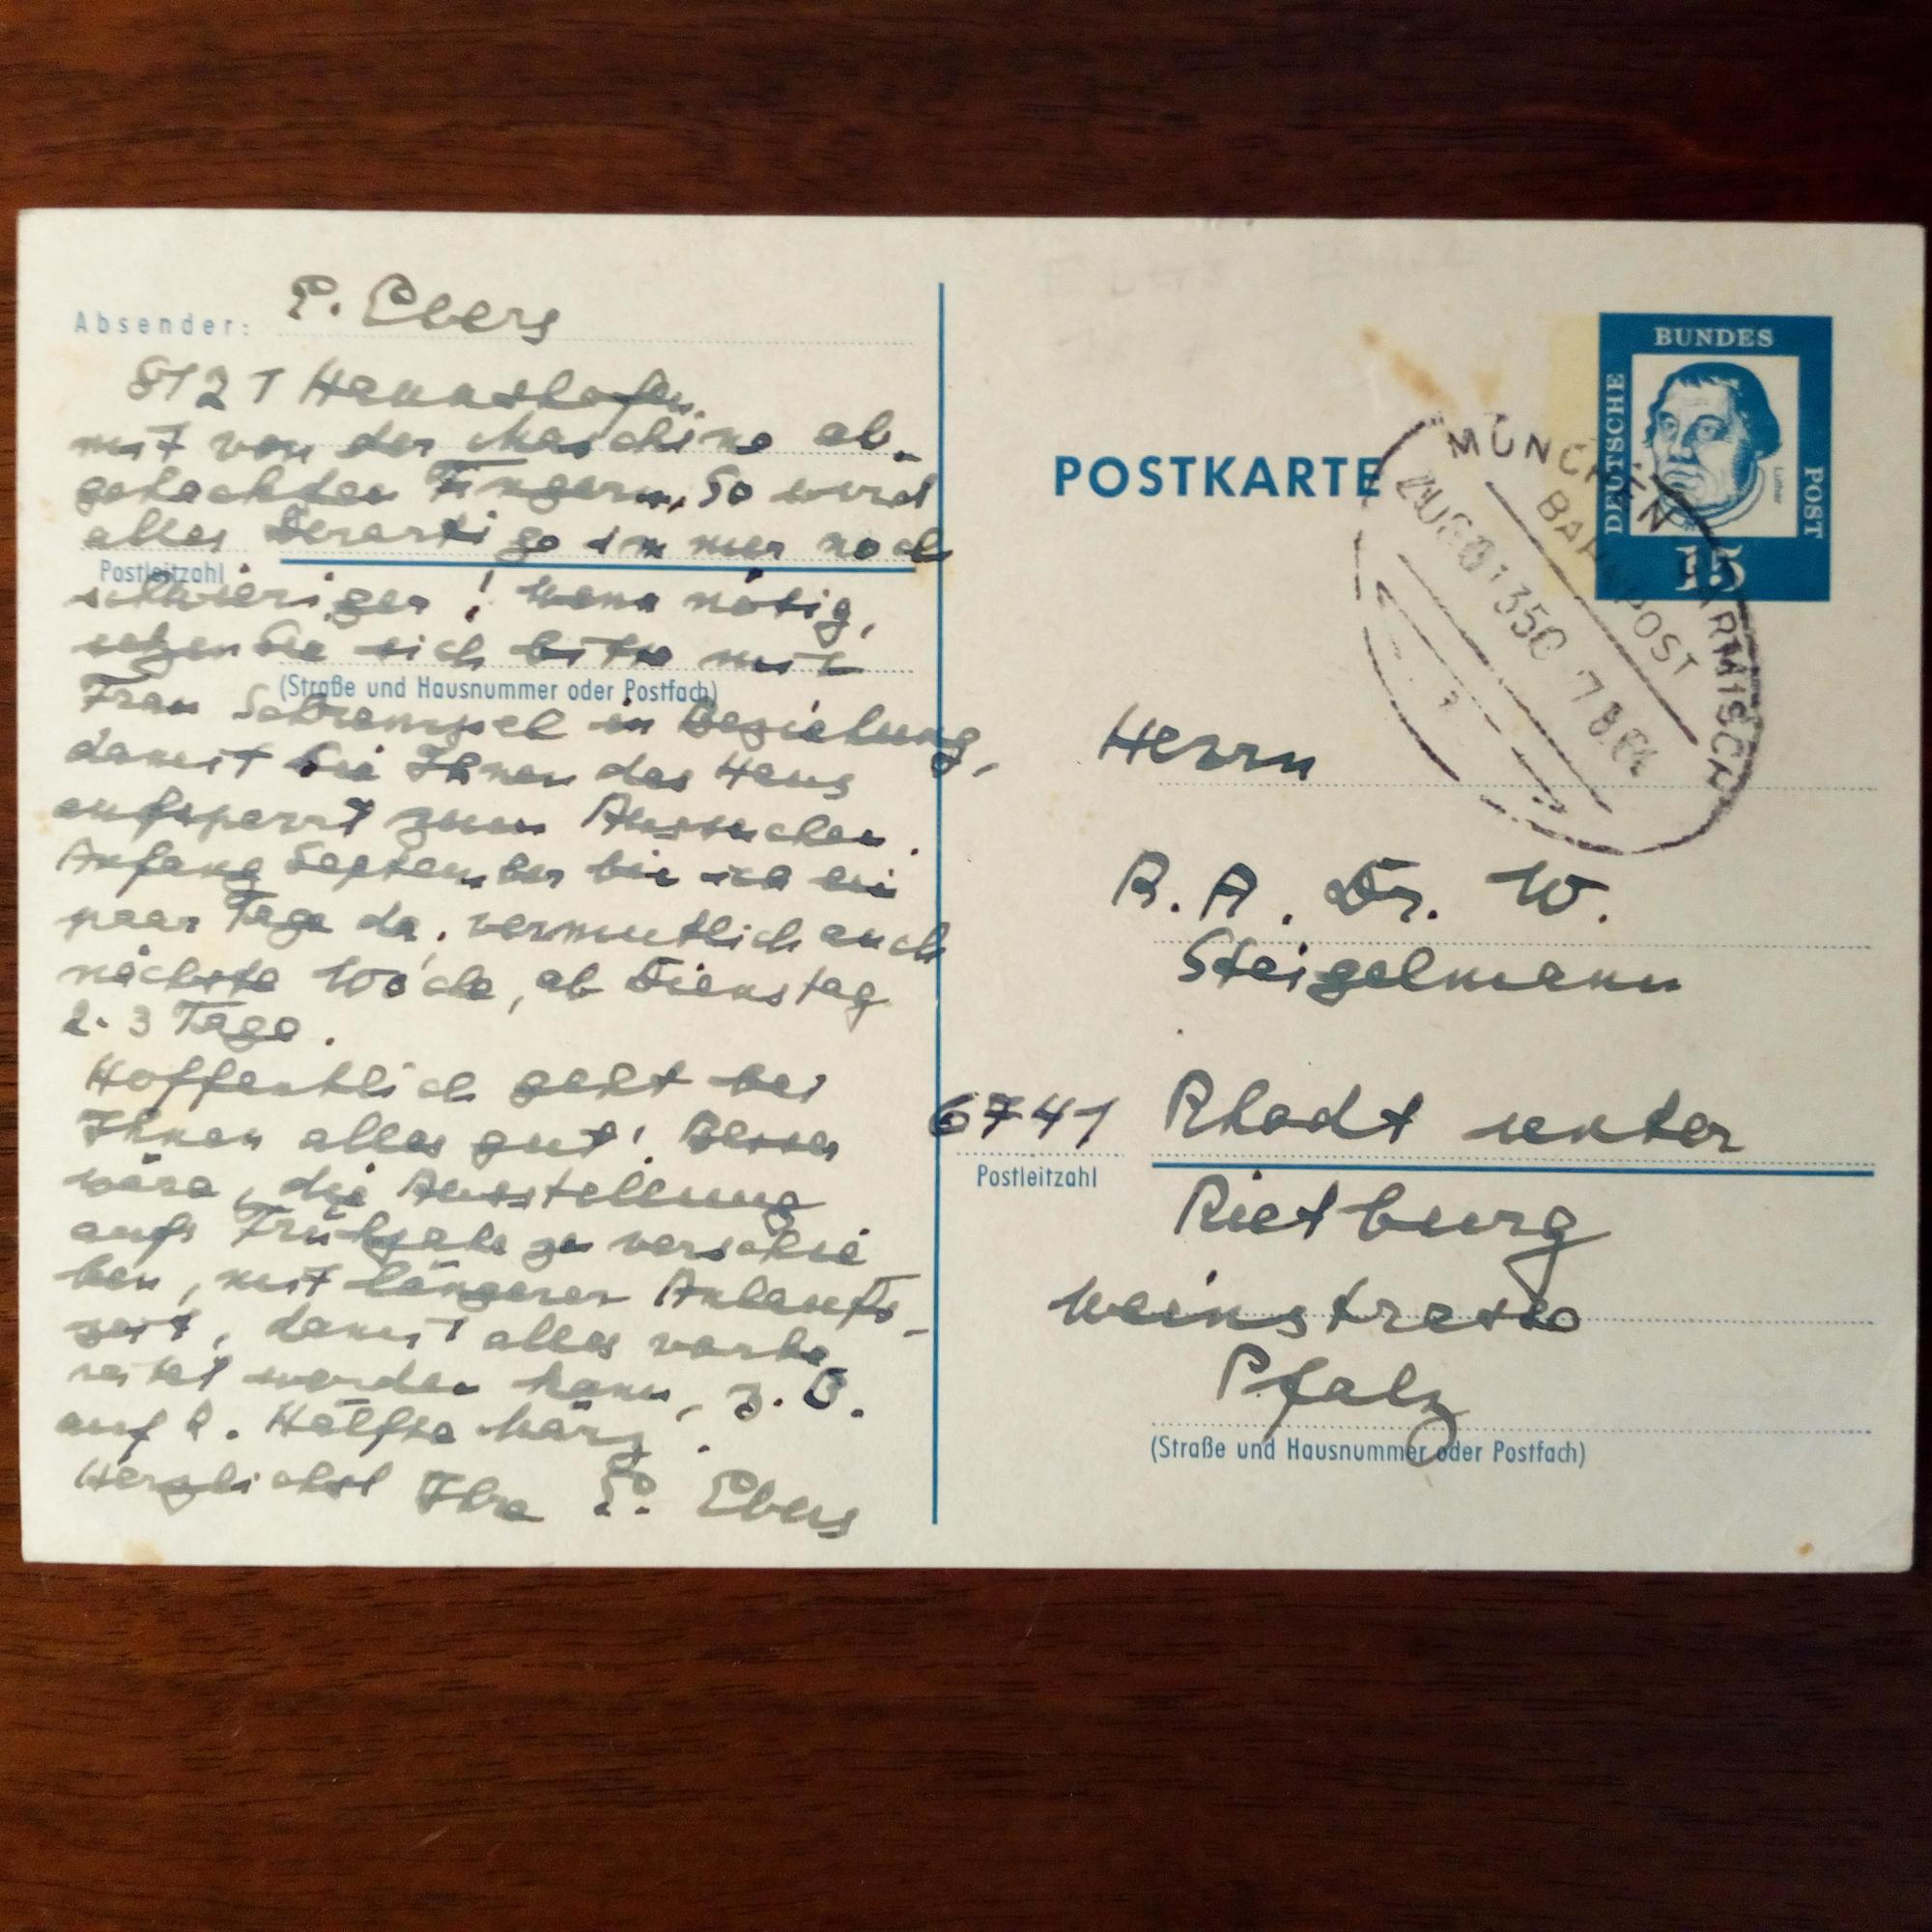 Absender: E. Ebers
8121 Haunshofen
mit von der Maschine ab-
gehackten Fingern. So wird
alles Derartige immer noch
Postleitzahl
schwieriger! Wenn nötig,
setzen Sie sich bitte mit
(Straße und Hausnummer oder Postfach)
Frau Schrempel in Beziehung,
damit sie Ihnen das Haus
aufsperrt zum Aussuchen.
Anfang September bin ich ein
paar Tage da, vermutlich auch
nächste Woche, ab Dienstag
2-3 Tage.
Hoffentlich geht bei
Ihnen alles gut! Besser
wäre, die Ausstellung
aufs Frühjahr zu verschie
ben, mit längerer Anlaufs-
zeit, damit alles vorbe
reitet werden kann, z. B.
auf 2. Hälfte März.
Herzlichst Ihre E. Ebers
POSTKARTE
DEUTSCHE
BUNDES
POST
Luther
15
MÜNCHEN GARMISCH
BAHNPOST
ZUG 01350 7.8.64
Herrn
R.A. Dr. W.
Steigelmann
6741 Rhodt unter
Postleitzahl
Rietburg
Weinstrasse
Pfalz
(Straße und Hausnummer oder Postfach)